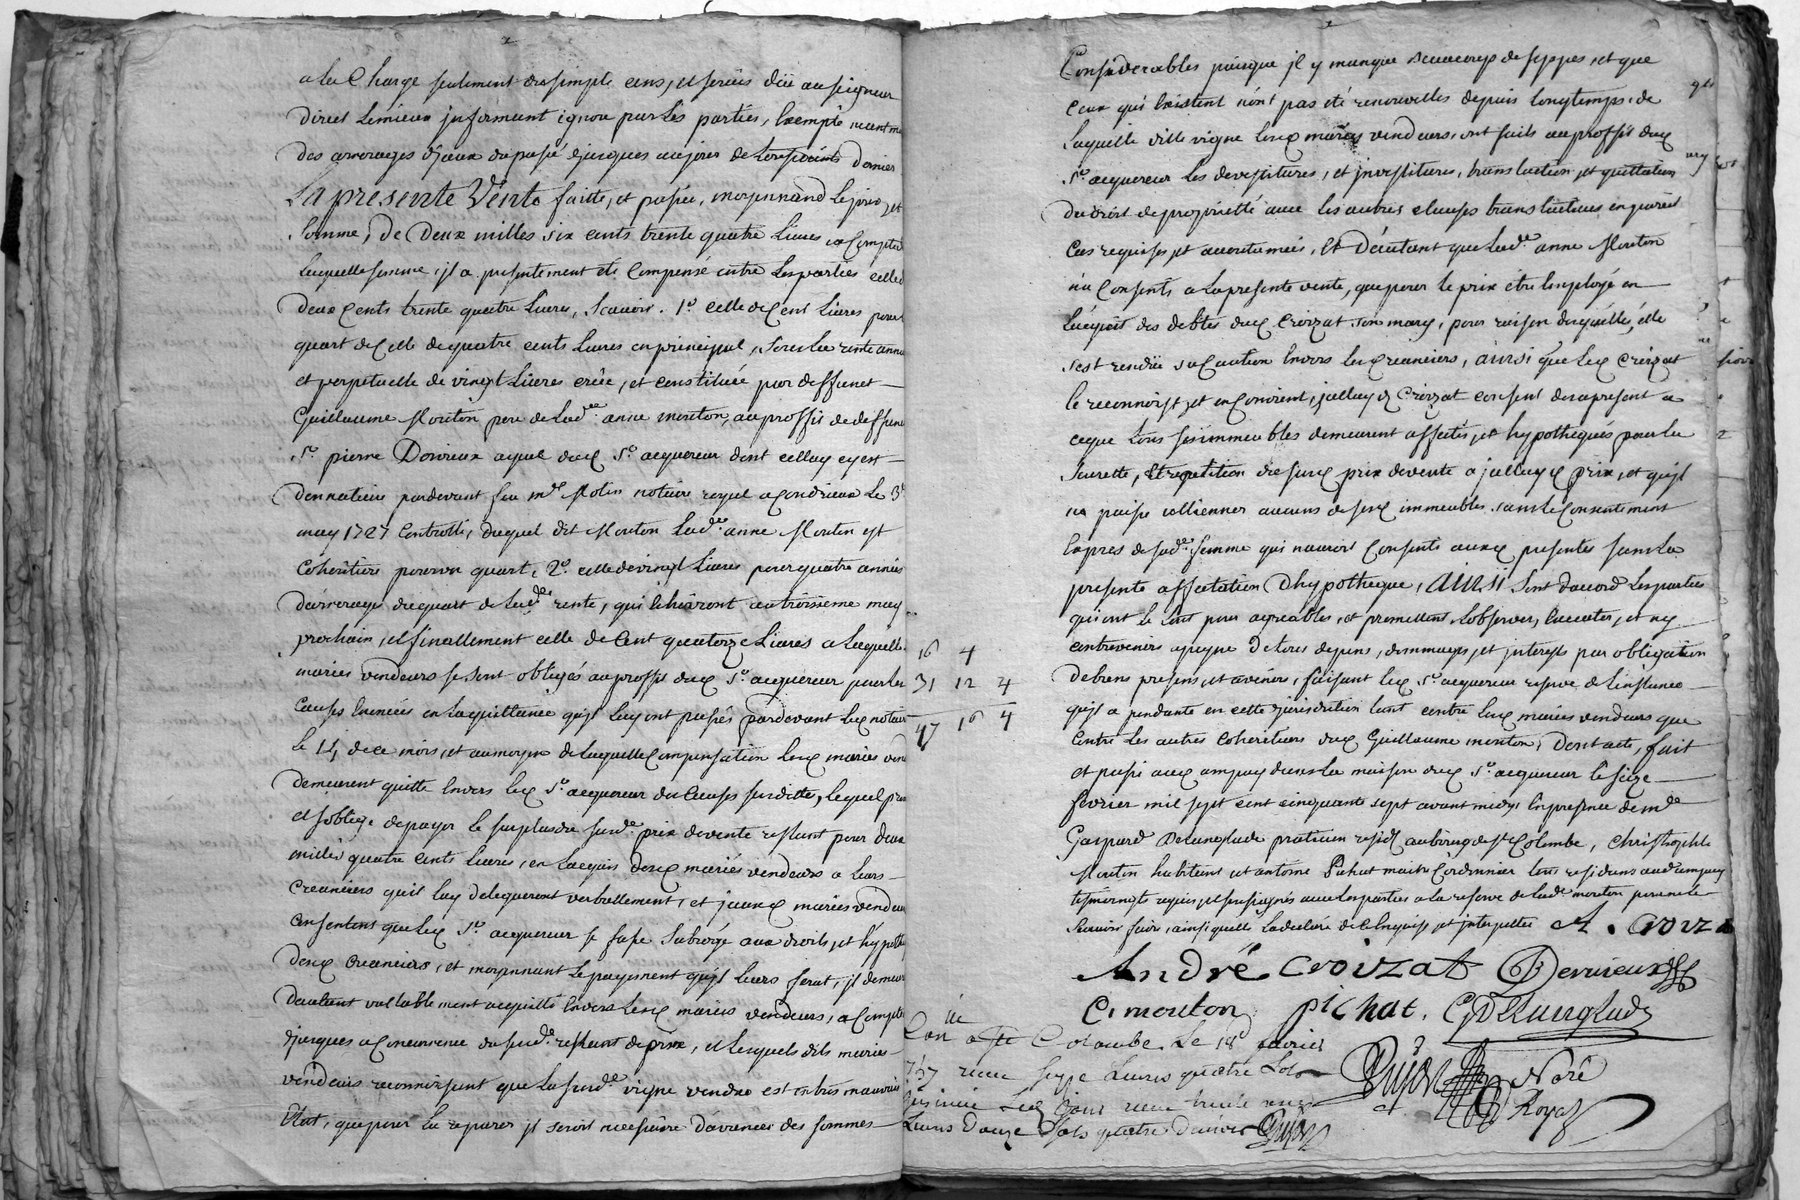 a la Charge seulement du simple cens, et servis dû au seigneur
direct lemieux informant ignoré par Les parties, Exempte neantm
des arrerages d'jceux du passé jusques au jour de Toussaints dernier
La presente Vente faitte, et passée, moyennand le prix, et
somme, de Deux milles six cents trente quatre Livres a Compte
laquelle somme, jl a presentement été Compensé entre Les parties celle
deux cents trente quatre Livres, Scavoir. 1º celle de Cent Livres pour
quart de Celle de quatre cents Livres en principal, sous la rente annu
et perpetuelle de vingt Livres créée, et constituée par deffunct
Guillaume Mouton pere de lade anne mouton, au proffit de deffunt
Sr pierre Dervieux ayeul dud Sr acquereur dont celluy cy est
donnataire pardevant feu me Motin notaire royal a Condrieux le 3e
may 1727 Controllé, duquel dit Mouton lade anne Mouton est
Coheritiere pour un quart, 2º celle de vingt Livres pour quatre années
d'arrerages du quart de lade rente, qui écheiront au troisieme may
prochain, et finallement celle de Cent quatorze Livres a laquelle
mariés vendeurs se sont obligés au proffit dud Sr acquereur pour les
Causes Enoncées en la quittance qu'jl leur ont passés pardevant led notaire
le 14 de ce mois, et au moyen de laquelle Compensation lesd mariés vend
demeurent quitte Envers led Sr acquereur des Causes susdittes, lequel pro
et s'oblige de payer le surplus du susde prix de vente restant pour deux
milles quatre cents livres, en l'acquis desd mariés vendeurs a leurs
Creanciers qu'il luy delegueront verballement, et jceux mariés vendeurs
consentent que led Sr acquereur se fasse Subrogé aux droits, et hypoth
desd creanciers, et moyennant le payement qu'jl leurs ferat, jl demeur
d'autant vallablement acquitté Envers lesd mariés vendeurs, a Compte
jusques a Concurrence du susde restant de prix, et lesquels dits mariés
vendeurs reconnoissent que la susde vigne vendue est en très mauvais
Etat, que pour la reparer jl seroit necessaire d'avancer des sommes
Considerables puisque jl y manque Beaucoup de seppes, et que
ceux qui Existent n'ont pas été renouvellés depuis longtemps, de
laquelle ditte vigne lesd mariés vendeurs, ont faits au proffit dud
Sr acquereur les devestitures, et jnvestitures, translation, et quittation
du droit de proprieté avec les autres clauses translatives en pareil
Cas requises, et accoutumées, Et D'autant que lade anne Mouton
n'a Consenti a la presente vente, que pour le prix être Employé en
l'acquit des debtes dud Croizat son mary, pour raison desquelles, elle
s'est rendüe sa Caution Envers les Creanciers, ainsi que led Croizat
le reconnoist, et en Convient, jcelluy d Croizat consent des a present a
ceque tous ses immeubles demeurent affectés, et hypothequés pour la
seurette, Et repetition du susd prix de vente a jcelluy prix, et qu'jl
ne puisse alliener aucuns de sesd immeubles sans le Consentement
Exprés de sade femme qui n'auroit Consenti auxd presentes sans la
presente affectation D'hypotheque, Ainsi sont d'accord Les parties
qui ont le tout pour agreables, et promettent l'observer, Executer, et n'y
contrevenir a peyne De tous depens, dommages, et jnterests par obligation
de biens presens, et avenirs, faisant led Sr acquereur reserve de l'instance
qu'jl a pendante en cette jurisdiction tant contre lesd mariés vendeurs que
Contre Les autres Coheritiers dud Guillaume mouton, Dont acte, fait
et passé aud ampuy dans la maison dud Sr acquereur le seize
fevrier mil sept cent cinquante sept avant midy, En presence de me
Gaspard Delanglade praticien residt au bourg de Ste Colombe, Christophle
Mouton habitant et antoine Pichat maitre Cordonnier tous residans aud ampuy
tesmoins requis, et soussignés avec les parties a la reserve de lade mouton pour ne le
Scavoir faire, ainsi qu'elle l'a declaré de ce Enquise, et jnterpellée A. Croiza
16 4
31 12 4
47 16 4
André Croizat Dervieux
C. mouton pichat. G Delanglade
Con a Ste Colombe Le 18e fevrier
757 receu seize Livres quatre sols
Insinué led jour receu trente une
Livres Douze sols quatre deniers Dujon
Dujon Nore
Royal